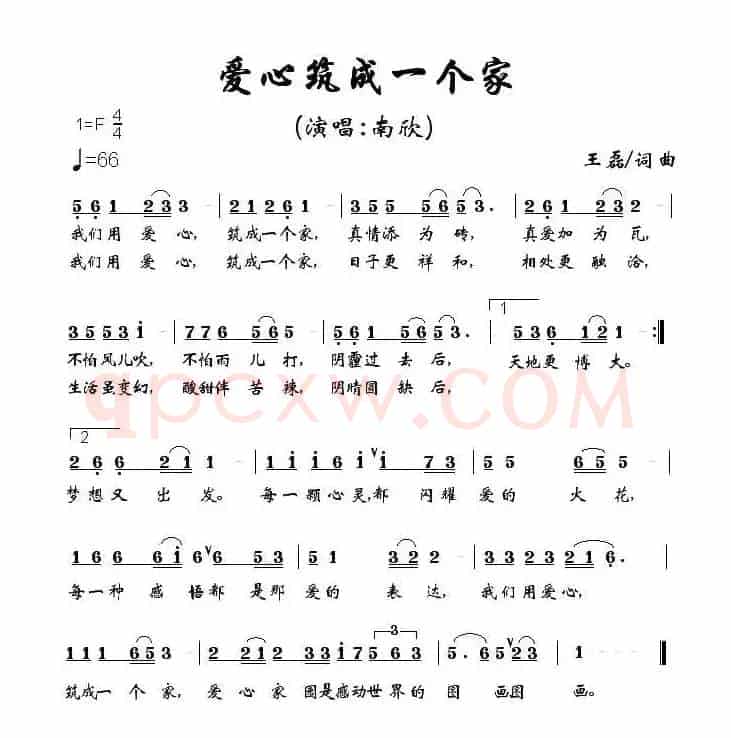 爱心筑成一个家
1=F 4/4
(演唱:南欣)
♩=66
王磊/词曲
5 6 1 2 3 3 - | 2 1 2 6 1 - | 3 5 5 5 6 5 3. | 2 6 1 2 3 2 - |
我们用 爱 心, 筑成一个家, 真情添 为 砖, 真爱加 为 瓦,
我们用 爱 心, 筑成一个家, 日子更 祥 和, 相处更 融 洽,
1
3 5 5 3 i - | 7 7 6 5 6 5 - | 5 6 1 5 6 5 3. | 5 3 6 1 2 1 - :|
不怕风儿吹, 不怕雨 儿 打, 阴霾过 去 后, 天地更 博 大。
生活虽变幻, 酸甜伴 苦 辣, 阴晴圆 缺 后,
qpcxw.com
2
2 6 6 2 1 1 - | 1 i i 6 i v i 7 3 | 5 5 - 6 5 5 - |
梦想又 出 发。 每一颗心灵,都 闪耀 爱的 火 花,
1 6 6 6 i 6 v 6 5 3 | 5 1 - 3 2 2 - | 3 3 2 3 2 1 6. |
每一种 感 悟都 是那 爱的 表 达, 我们用爱心,
1 1 1 6 5 3 - | 2 2 1 2 3 3 i 7 5 6 3 3 | 5. 6 5 v 2 3 | 1 - - - ‖
筑成一 个 家, 爱 心 家 园是感动世界的 图 画图 画。